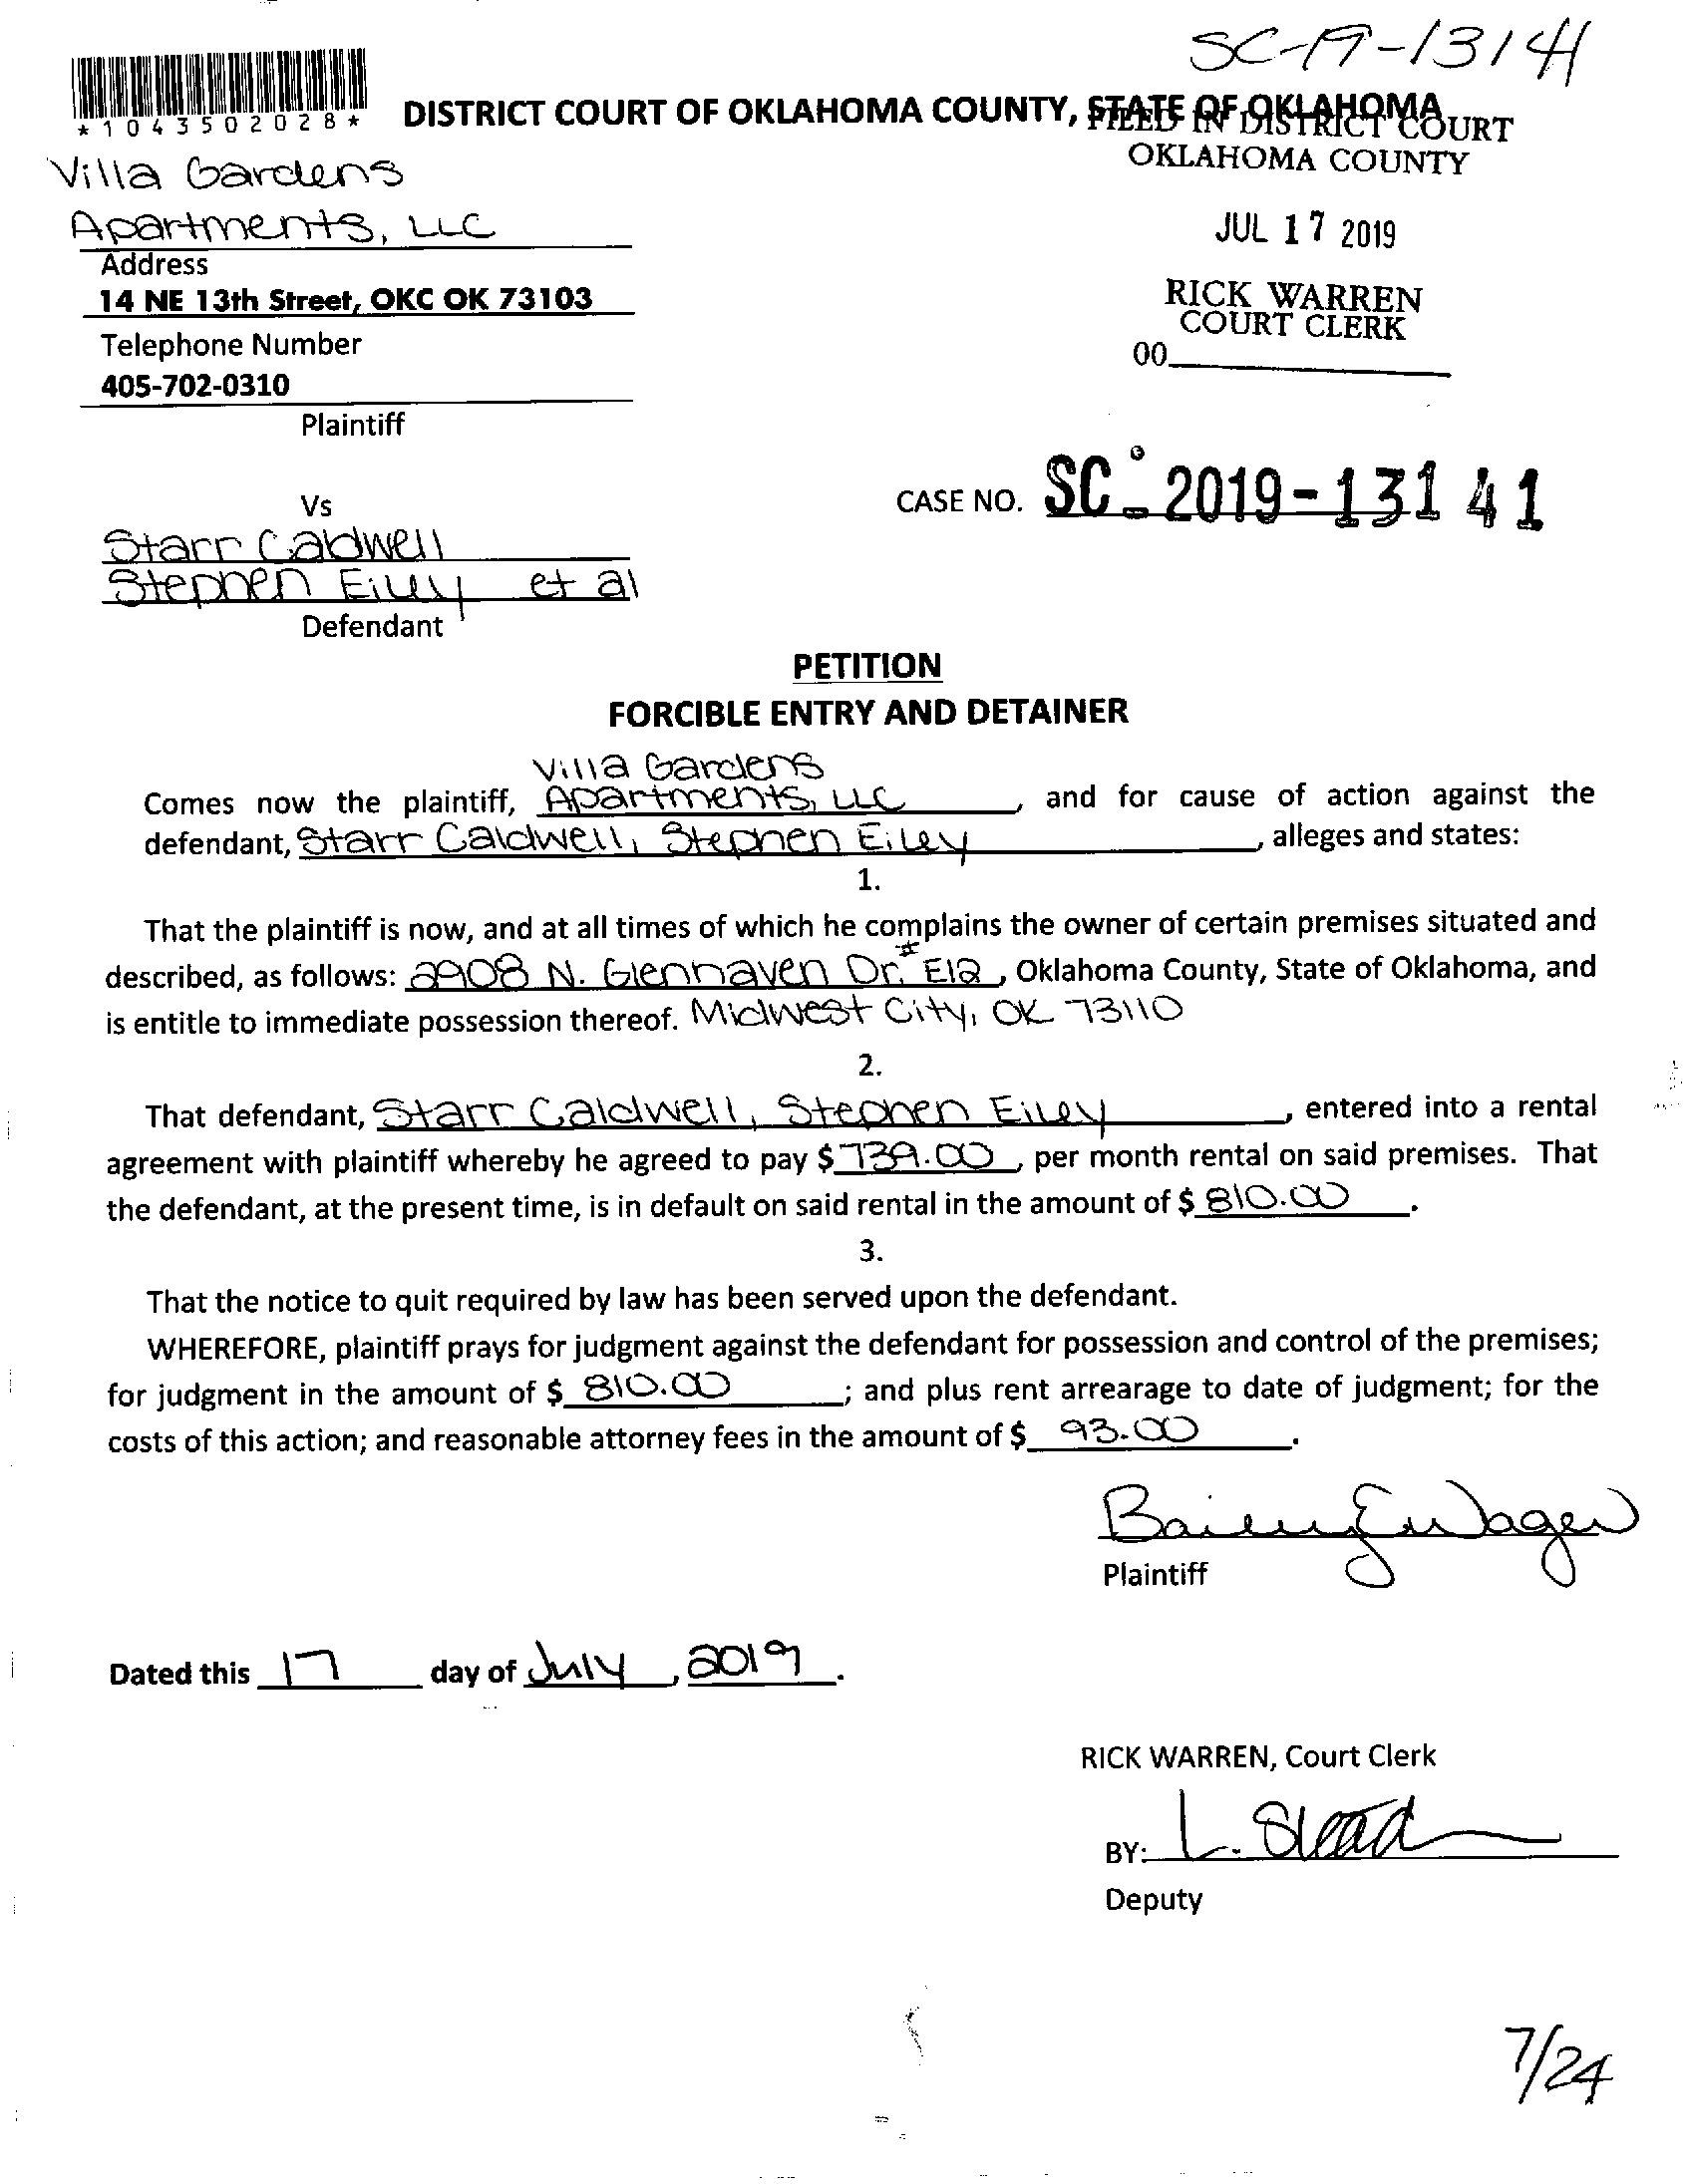 SC-19-13141
*1043502028*
DISTRICT COURT OF OKLAHOMA COUNTY, STATE OF OKLAHOMA
FILED IN DISTRICT COURT
OKLAHOMA COUNTY
Villa Gardens
Apartments, LLC
JUL 17 2019
Address
14 NE 13th Street, OKC OK 73103
RICK WARREN
COURT CLERK
Telephone Number
00
405-702-0310
Plaintiff
Vs
CASE NO. SC-2019-13141
Starr Caldwell
Stephen Eiley et al
Defendant
PETITION
FORCIBLE ENTRY AND DETAINER
Villa Gardens
Comes now the plaintiff, Apartments, LLC, and for cause of action against the
defendant, Starr Caldwell, Stephen Eiley, alleges and states:
1.
That the plaintiff is now, and at all times of which he complains the owner of certain premises situated and
described, as follows: 2908 N. Glenhaven Dr. #E12, Oklahoma County, State of Oklahoma, and
is entitle to immediate possession thereof. Midwest City, OK 73110
2.
That defendant, Starr Caldwell, Stephen Eiley, entered into a rental
agreement with plaintiff whereby he agreed to pay $739.00, per month rental on said premises. That
the defendant, at the present time, is in default on said rental in the amount of $810.00.
3.
That the notice to quit required by law has been served upon the defendant.
WHEREFORE, plaintiff prays for judgment against the defendant for possession and control of the premises;
for judgment in the amount of $810.00; and plus rent arrearage to date of judgment; for the
costs of this action; and reasonable attorney fees in the amount of $93.00.
Plaintiff
Dated this 17 day of July, 2019.
RICK WARREN, Court Clerk
BY: L. Slead
Deputy
7/24